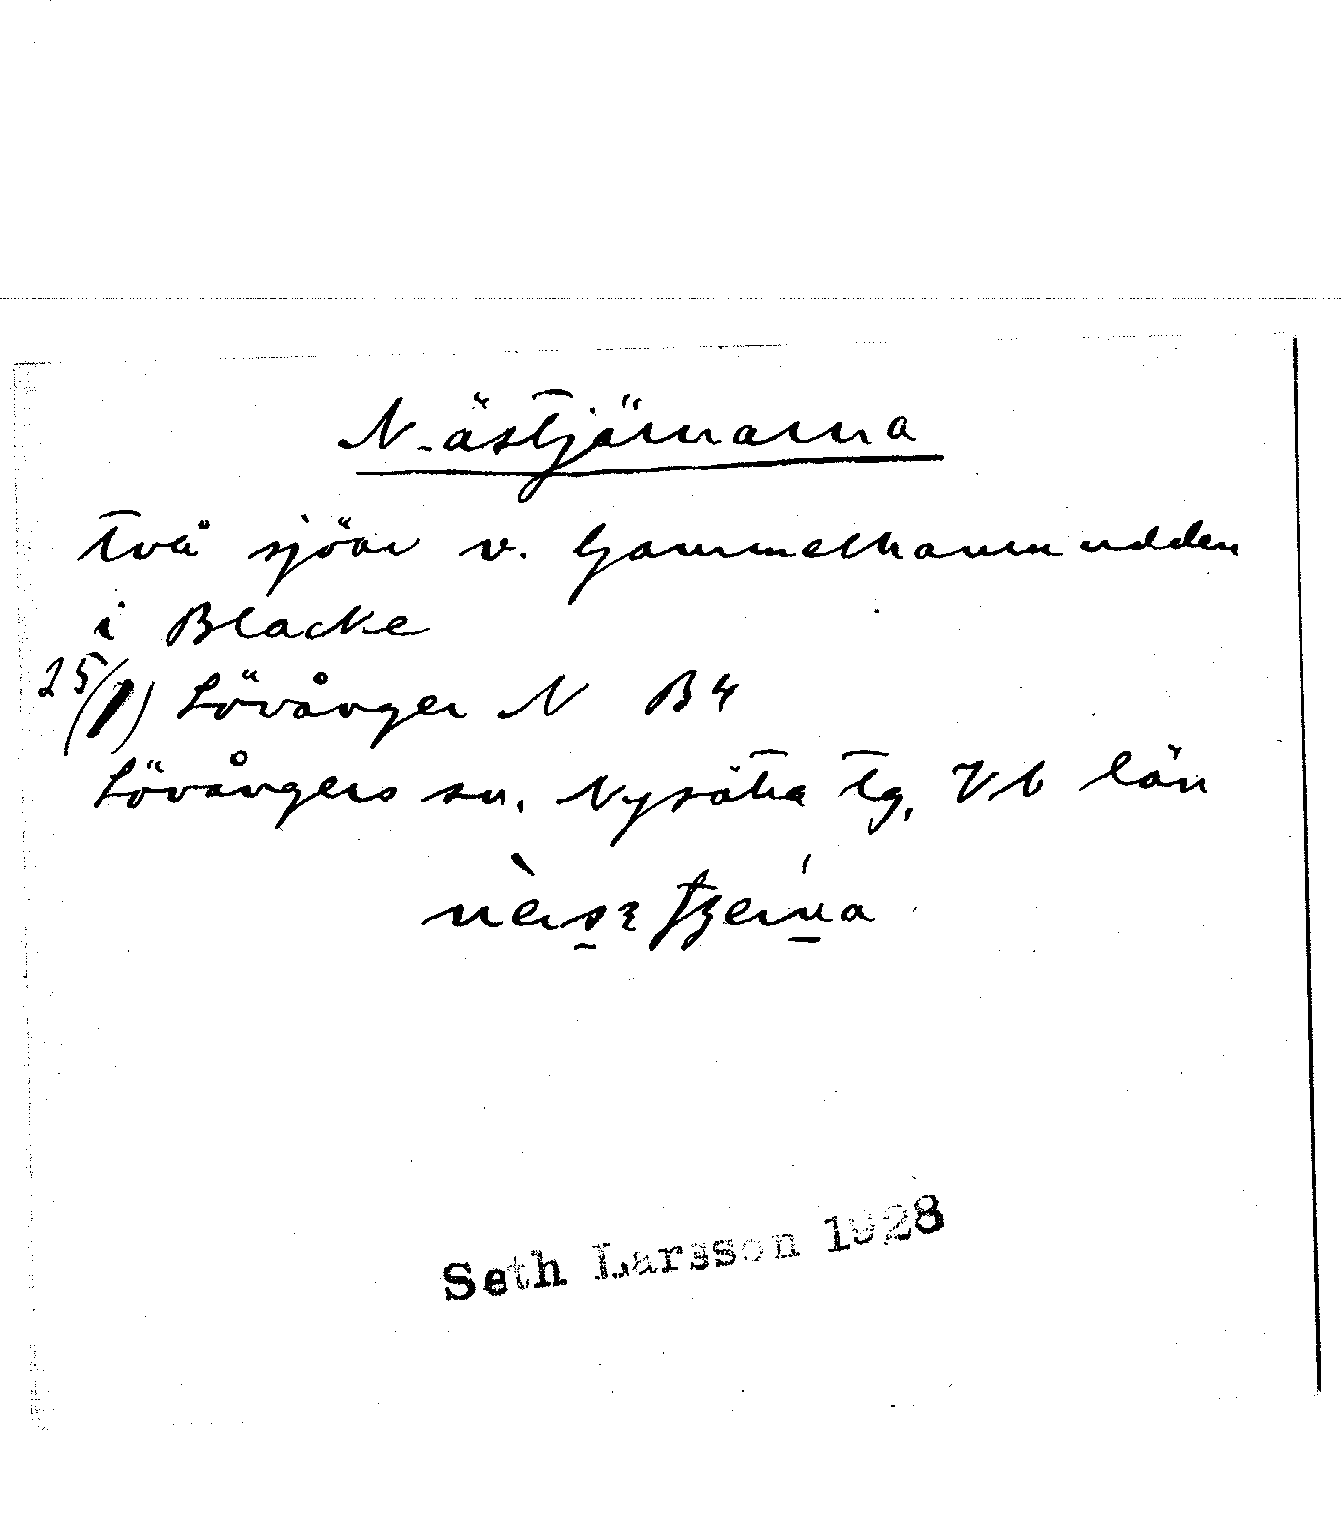 N-ästjärnarna
två sjöar v. Gammelhamnudden
i Blacke
25/1) Lövånger N B4
Lövångers sn. Nysätra tg, Vb län
Seth Larsson 1928